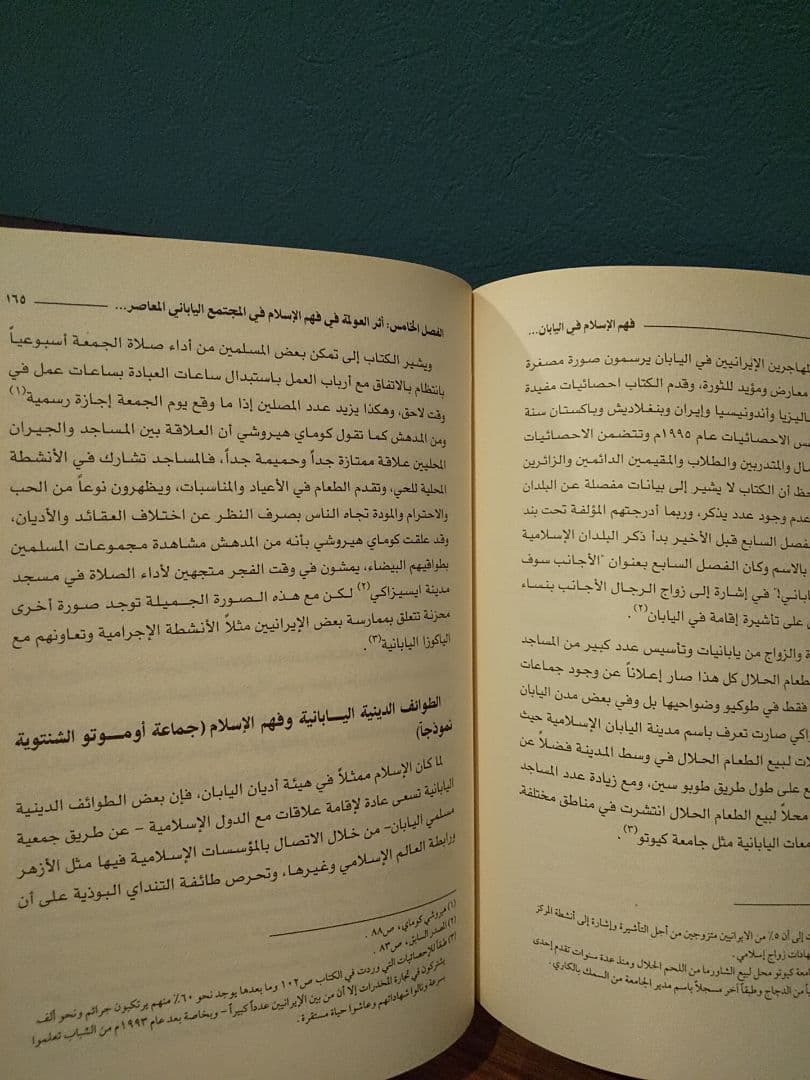 فهم الإسلام في اليابان...
المهاجرين الإيرانيين في اليابان يرسمون صورة مصغرة
معارض ومؤيد للثورة، وقدم الكتاب احصائيات مفيدة
وأندونيسيا وإيران وبنغلاديش وباكستان سنة
الاحصائيات عام ١٩٩٥م وتتضمن الاحصائيات
والمتدربين والطلاب والمقيمين الدائمين والزائرين
أن الكتاب لا يشير إلى بيانات مفصلة عن البلدان
عدم وجود عدد يذكر، وربما أدرجتهم المؤلفة تحت بند
الفصل السابع قبل الأخير بدأ ذكر البلدان الإسلامية
بالاسم وكان الفصل السابع بعنوان "الأجانب سوف
في إشارة إلى زواج الرجال الأجانب بنساء
على تأشيرة إقامة في اليابان(٢).
والزواج من يابانيات وتأسيس عدد كبير من المساجد
الطعام الحلال كل هذا صار إعلاناً عن وجود جماعات
فقط في طوكيو وضواحيها بل وفي بعض مدن اليابان
صارت تعرف باسم مدينة اليابان الإسلامية حيث
لبيع الطعام الحلال في وسط المدينة فضلاً عن
على طول طريق طوبو سين، ومع زيادة عدد المساجد
محلاً لبيع الطعام الحلال انتشرت في مناطق مختلفة
اليابانية مثل جامعة كيوتو(٣).
إلى أن ٥٪ من الايرانيين متزوجين من أجل التأشيرة وإشارة إلى أنشطة المركز
زواج إسلامي.
كيوتو محل لبيع الشاورما من اللحم الحلال ومنذ عدة سنوات تقدم إحدى
من الدجاج وطبقاً آخر مسجلاً باسم مدير الجامعة من السمك بالكاري.
الفصل الخامس: أثر العولمة في فهم الإسلام في المجتمع الياباني المعاصر... ١٦٥
ويشير الكتاب إلى تمكن بعض المسلمين من أداء صلاة الجمعة أسبوعياً
بانتظام بالاتفاق مع أرباب العمل باستبدال ساعات العبادة بساعات عمل في
وقت لاحق، وهكذا يزيد عدد المصلين إذا ما وقع يوم الجمعة إجازة رسمية(١)
ومن المدهش كما تقول كوماي هيروشي أن العلاقة بين المساجد والجيران
المحليين علاقة ممتازة جداً وحميمة جداً، فالمساجد تشارك في الأنشطة
المحلية للحي، وتقدم الطعام في الأعياد والمناسبات، ويظهرون نوعاً من الحب
والاحترام والمودة تجاه الناس بصرف النظر عن اختلاف العقائد والأديان،
وقد علقت كوماي هيروشي بأنه من المدهش مشاهدة مجموعات المسلمين
بطواقيهم البيضاء، يمشون في وقت الفجر متجهين لأداء الصلاة في مسجد
مدينة ايسيزاكي(٢) لكن مع هذه الصورة الجميلة توجد صورة أخرى
محزنة تتعلق بممارسة بعض الإيرانيين مثلاً الأنشطة الإجرامية وتعاونهم مع
الياكوزا اليابانية(٣).
الطوائف الدينية اليابانية وفهم الإسلام (جماعة أوموتو الشنتوية
نموذجاً)
لما كان الإسلام ممثلاً في هيئة أديان اليابان، فإن بعض الطوائف الدينية
اليابانية تسعى عادة لإقامة علاقات مع الدول الإسلامية - عن طريق جمعية
مسلمي اليابان- من خلال الاتصال بالمؤسسات الإسلامية فيها مثل الأزهر
ورابطة العالم الإسلامي وغيرها، وتحرص طائفة التنداي البوذية على أن
(١) هيروشي كوماي، ص٨٨.
(٢) المصدر السابق، ص٨٣.
(٣) طبقاً للإحصائيات التي وردت في الكتاب ص١٠٢ وما بعدها يوجد نحو ٦٠٪ منهم يرتكبون جرائم ونحو ألف
يشتركون في تجارة المخدرات إلا أن من بين الإيرانيين عدداً كبيراً - وبخاصة بعد عام ١٩٩٣م من الشباب تعلموا
بسرعة ونالوا شهاداتهم وعاشوا حياة مستقرة.